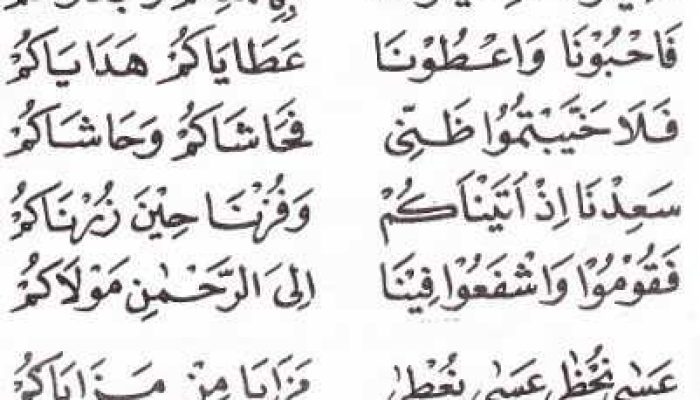 فَاحْبُوْنَا وَاعْطُوْنَا عَطَايَاكُمْ هَدَايَاكُمْ
فَلَا خَيَّبْتُمُوْا ظَنِّى فَحَاشَاكُمْ وَحَاشَاكُمْ
سَعِدْنَا اِذْ اَتَيْنَاكُمْ وَفُزْنَا حِيْنَ زُرْنَاكُمْ
فَقُوْمُوْا وَاشْفَعُوْا فِيْنَا اِلَى الرَّحْمٰنِ مَوْلَاكُمْ
عَسٰى نُحْظٰى عَسٰى نُعْطٰى مَزَايَا مِنْ مَزَايَاكُمْ